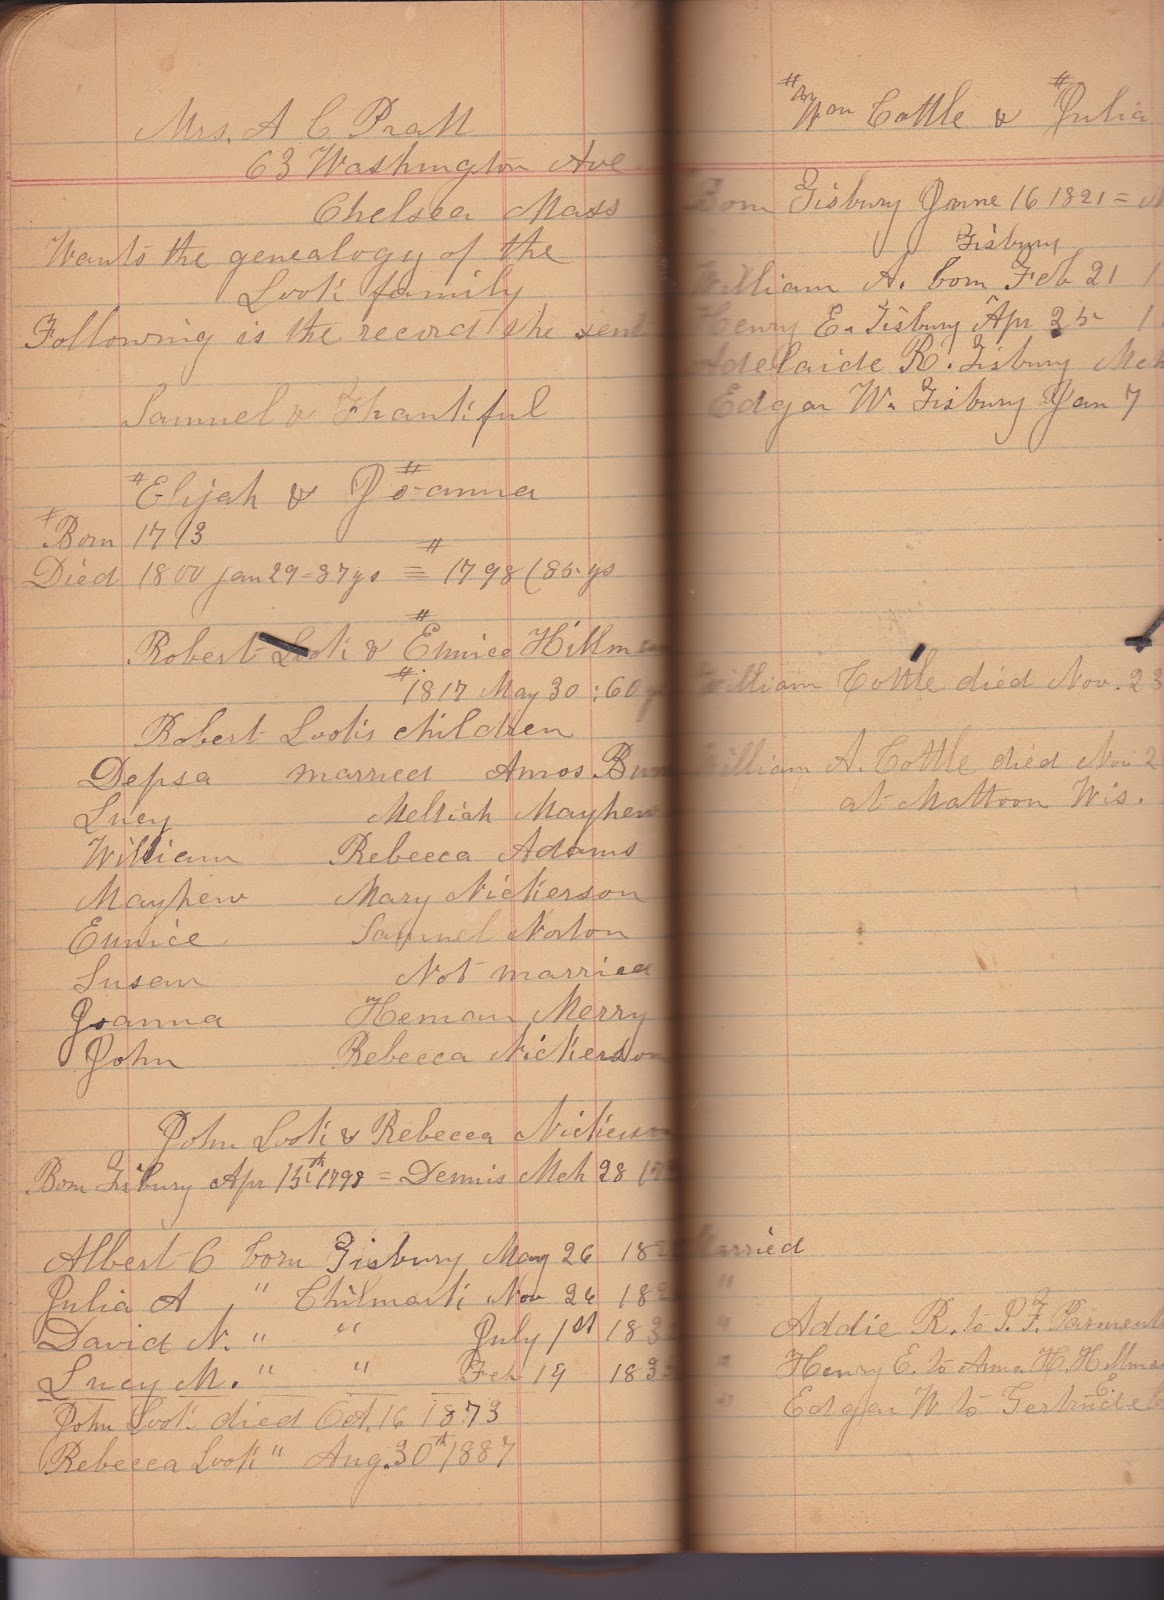 Mrs. A C Pratt
63 Washington Ave
Chelsea Mass
Wants the genealogy of the
Look family
Following is the record she sent
Samuel & Thankful
# Elijah & # Joanna
# Born 1713
Died 1800 Jan 29 = 87 ys = # 1798 (85 ys
Robert Look & # Eunice Hillman
# 1817 May 30 : 60
Robert Look's children
Depsa married Amos
Lucy Meltiah Mayhew
William Rebecca Adams
Mayhew Mary Nickerson
Eunice Samuel Norton
Susan Not married
Joanna Heman Merry
John Rebecca Nickerson
John Look & Rebecca Nickerson
Born Tisbury Apr 15th 1798 = Dennis Mch 28
Albert C born Tisbury May 26 18
Julia A " Chilmark Nov 26 18
David N. " " July 1st 183
Lucy M. " " Feb 19 183
John Look died Oct. 16 1873
Rebecca Look " Aug. 30th 1887
# Wm Cottle & # Julia
Born Tisbury June 16 1821 =
Tisbury
William A. born Feb 21
Henry E. Tisbury Apr 25
Adelaide R. Tisbury Mch
Edgar W. Tisbury Jan 7
William Cottle died Nov. 23
William A. Cottle died Nov 2
at Mattoon Wis.
Married
"
" Addie R. to P. F. Parmente
" Henry E. to Anna H. Hillma
" Edgar W to Gertrude E.